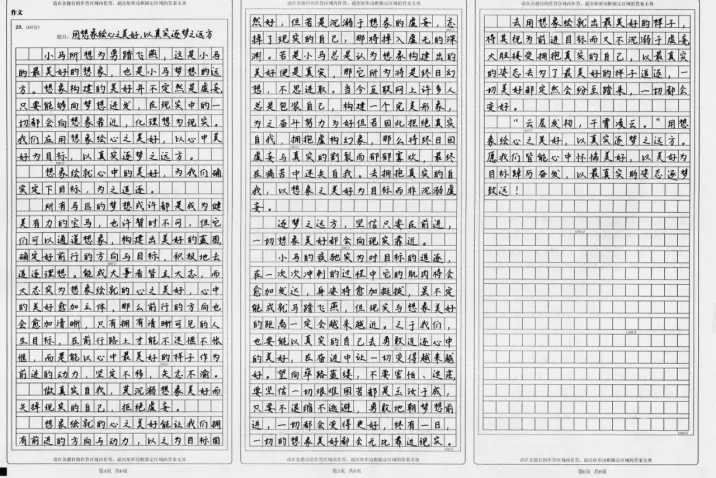 请在各题目的作答区域内作答，超出矩形边框限定区域的答案无效
作文
23.（60分）
题目：用想象绘心之美好，以真实逐梦之远方
小马所想为勇踏飞燕，这是小马
的最美好的想象，也是小马梦想的远
方。想象构建的美好并不定然是虚妄
只要能够向梦想进发，在现实中的一
切都会向想象靠近，化理想为现实。
我们应用想象绘心之美好，以心中美
好为目标，以真实逐梦之远方。
想象绘就心中的美好，为我们确
实定下目标，为之追逐。
所有马匹的梦想或许都是成为健
美有力的宝马，也许暂时不可，但它
们可以通过想象，构建出美好的蓝图
确定好前行的方向与目标，积极地去
追逐理想。能成大事者皆立大志，而
大志实为想象绘就的心之美好，心中
的美好愈加立体，那么前行的方向也
会愈加清晰，只有拥有清晰可见的人
生目标，在前行路上才能不迷惘不怅
惘，而是能以心中最美好的样子作为
前进的动力，坚定不移，矢志不渝。
做真实自我，莫沉溺想象美好而
失掉现实的自己，拒绝虚妄。
想象绘就的心之美好能让我们拥
有前进的方向与动力，以之为目标固
请在各题目的作答区域内作答，超出矩形边框限定区域的答案无效
第4页 共6页
请在各题目的作答区域内作答，超出矩形边框限定区域的答案无效
然好，但若是沉溺于想象的虚妄，忘
掉了现实的自己，那将掉入虚无的深
渊。若是小马总是认为想象构建出的
美好便是真实，那它所为将是终日幻
想，不思进取。当今互联网上许多人
总是包装自己，构建一个完美形象，
为之奋斗努力为好但若因此拒绝真实
自我，拥抱虚构幻象，那么将终日因
虚妄与真实的割裂而郁郁寡欢，最终
在痛苦中迷失自我。去拥抱真实的自
我，以想象之美好为目标而非沉溺虚
妄。
逐梦之远方，坚信只要在前进，
一切想象美好都会向现实靠近。
小马的最驰实为对目标的追逐，
在一次次冲刺的过程中它的肌肉将会
愈加发达，身姿将愈加挺拔，虽不定
能成就马踏飞燕，但现实与想象美好
的距离一定会越来越近。之于我们，
也要能以真实的自己去勇敢追逐心中
的美好，在奋进中让一切变得越来越
好。望向筚路蓝缕，不要害怕、迷茫
要坚信一切艰难困苦都是玉汝于成，
只要不退缩不逃避，勇敢地朝梦想前
进，一切都会变得更好，终有一日，
一切的想象美好都会无比靠近现实。
请在各题目的作答区域内作答，超出矩形边框限定区域的答案无效
第5页 共6页
请在各题目的作答区域内作答，超出矩形边框限定区域的答案无效
去用想象绘就出最美好的样子，
将其视为前进目标而又不沉溺于虚妄
大胆接受拥抱真实的自己，以最真实
的姿态去为了最美好的样子追逐，一
切美好都定然会纷至踏来，一切都会
变好。
“云层发初，干霄凌云。”用想
象绘心之美好，以真实逐梦之远方。
愿我们皆能心中怀揣美好，以美好为
目标踔厉奋发，以最真实的姿态逐梦
致远！
请在各题目的作答区域内作答，超出矩形边框限定区域的答案无效
第6页 共6页